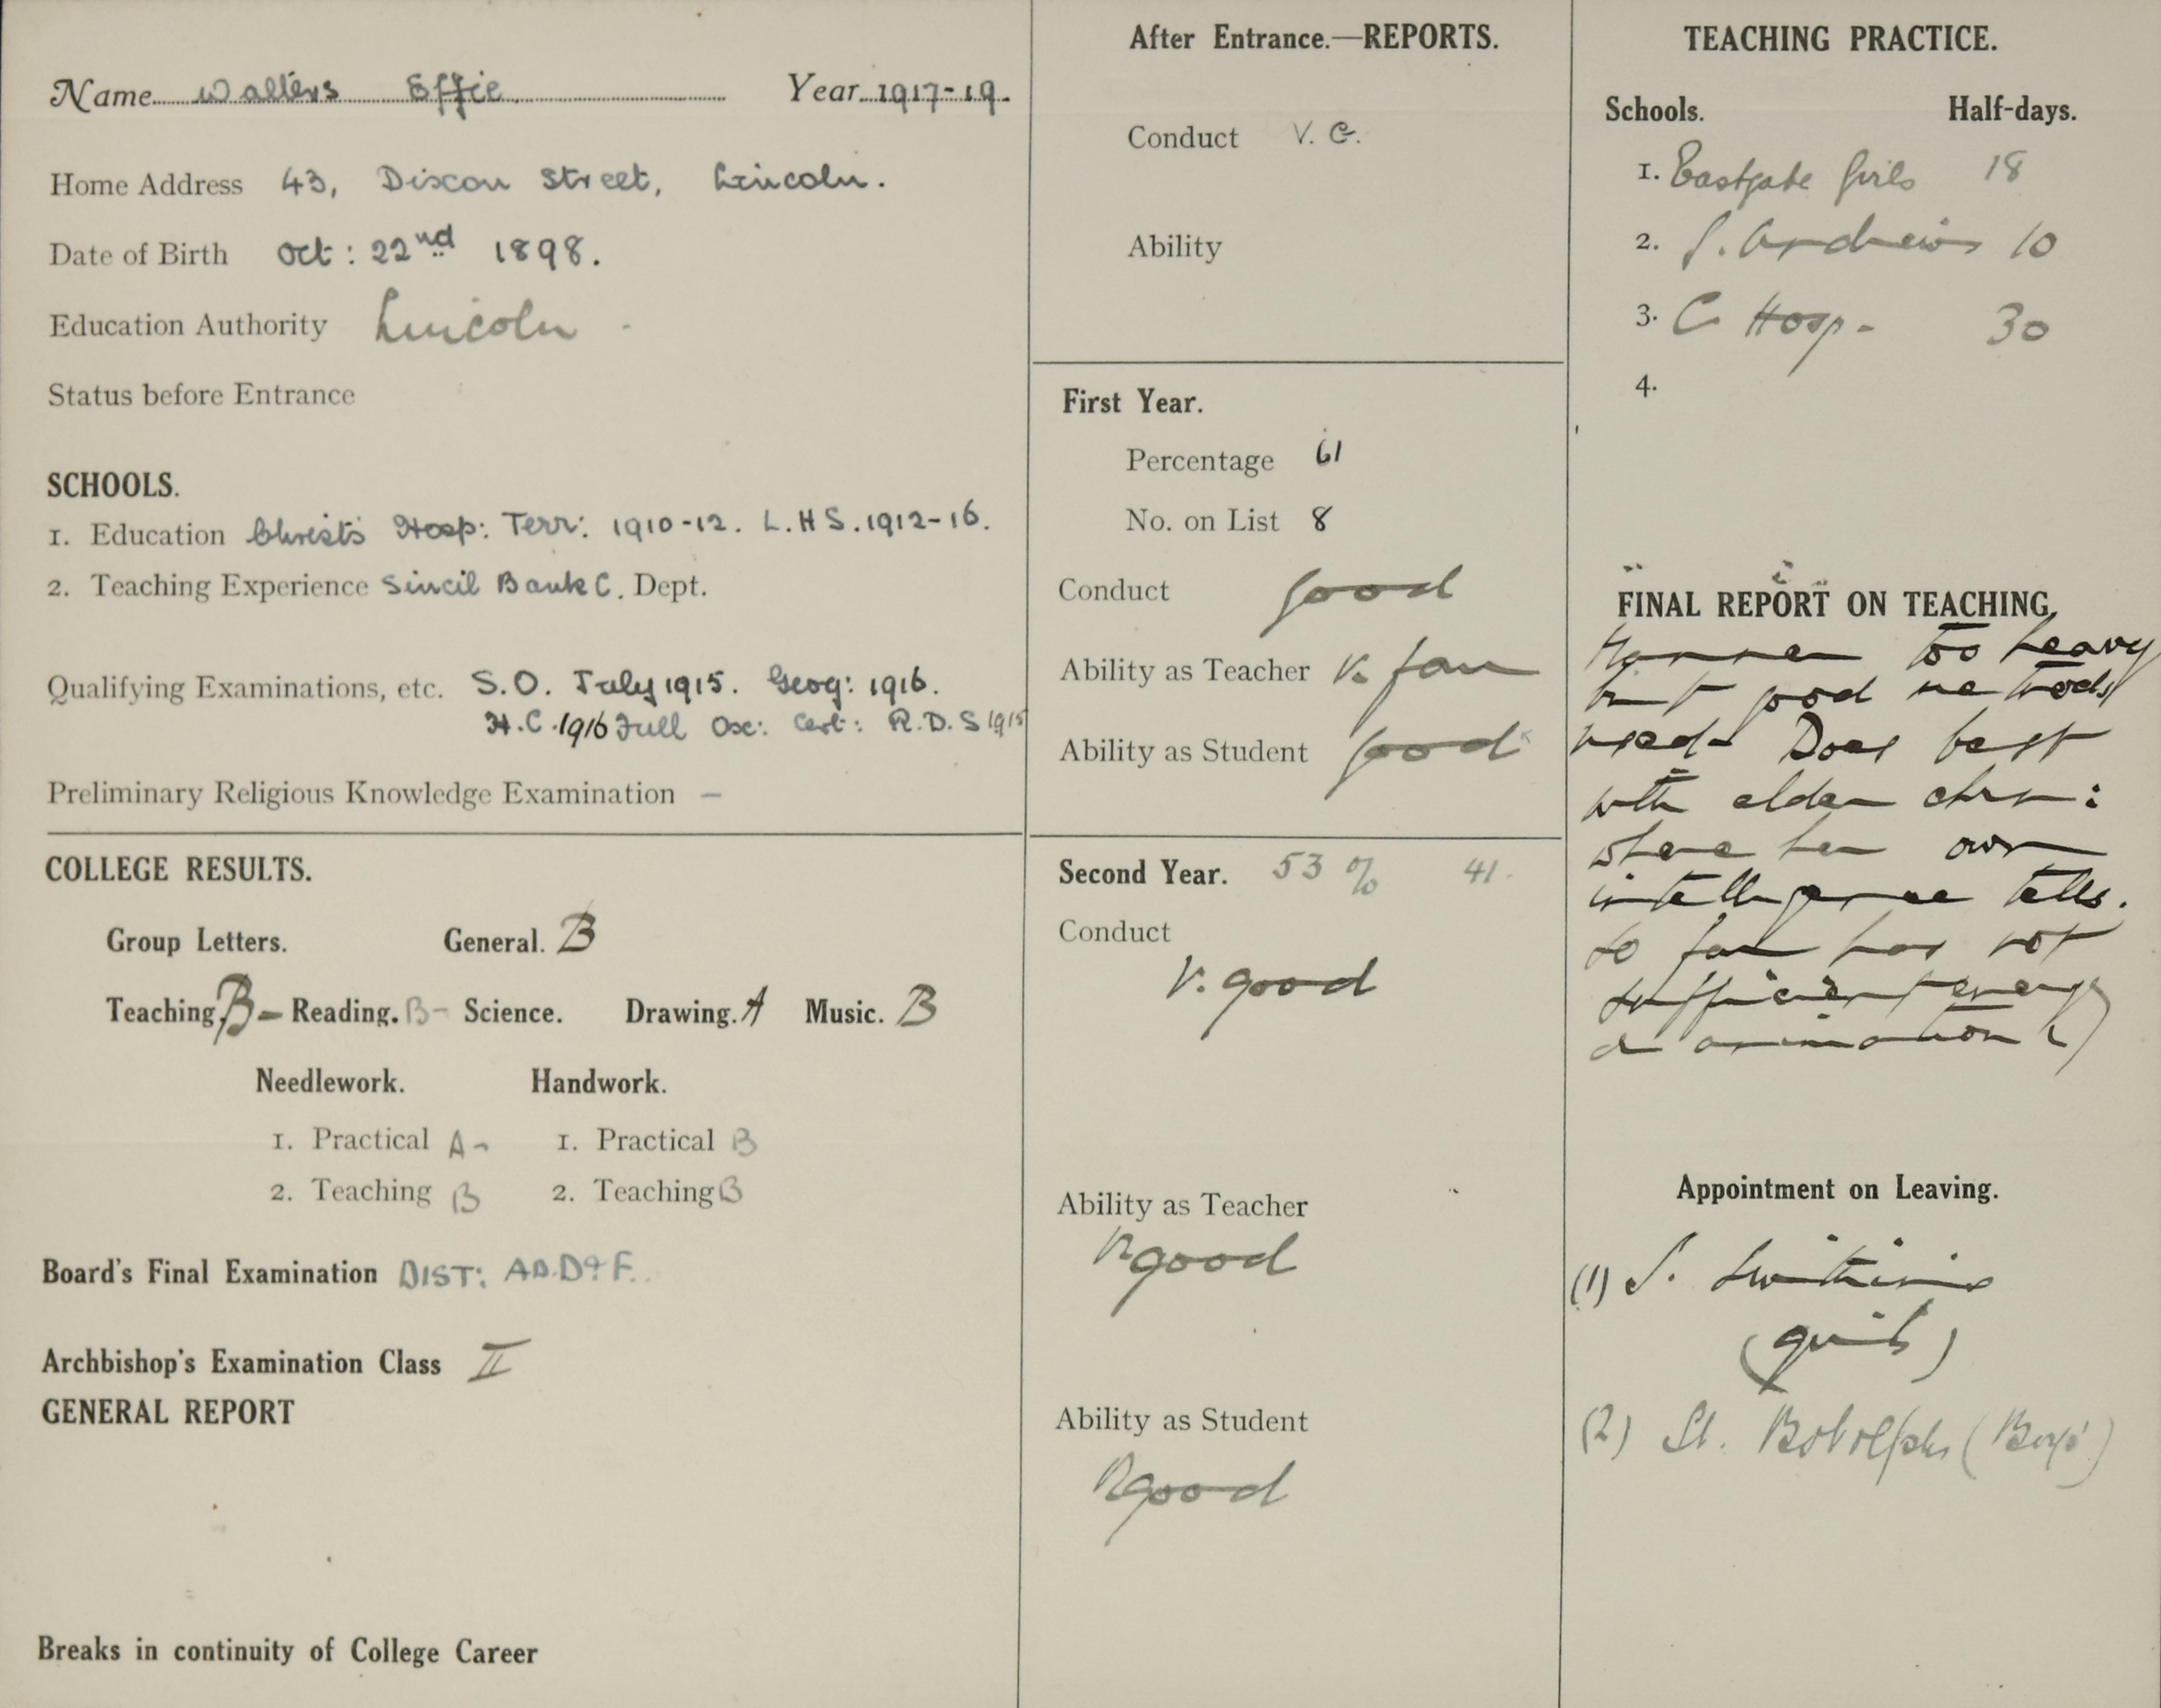 Name Walters Effie Year 1917-19.
Home Address 43, Dixon Street, Lincoln.
Date of Birth Oct: 22nd 1898.
Education Authority Lincoln
Status before Entrance
SCHOOLS.
1. Education Christ's Hosp: Terr: 1910-12. L.H S. 1912-16.
2. Teaching Experience Sincil Bank C. Dept.
Qualifying Examinations, etc. S.O. July 1915. Geog: 1916.
H.C. 1916 Full Osc: Cert: R.D.S 1915
Preliminary Religious Knowledge Examination –
COLLEGE RESULTS.
Group Letters. General. B
Teaching. B– Reading. B– Science. Drawing. A Music. B
Needlework. Handwork.
1. Practical A- 1. Practical B
2. Teaching B 2. Teaching B
Board's Final Examination DIST: AD.D & F.
Archbishop's Examination Class II
GENERAL REPORT
Breaks in continuity of College Career
After Entrance.—REPORTS.
Conduct V. G.
Ability
First Year.
Percentage 61
No. on List 8
Conduct good
Ability as Teacher V. fair
Ability as Student good
Second Year. 53 % 41.
Conduct
V. good
Ability as Teacher
V good
Ability as Student
V good
TEACHING PRACTICE.
Schools. Half-days.
1. Eastgate Girls 18
2. S. Andrews 10
3. C. Hosp- 30
4.
FINAL REPORT ON TEACHING.
Manner too heavy
but good methods
used. Does best
with older chn:
where her own
intelligence tells.
So far has not
sufficient energy
& animation
Appointment on Leaving.
(1) S. Swithin's
(girls)
(2) St. Botolphs (Boys')